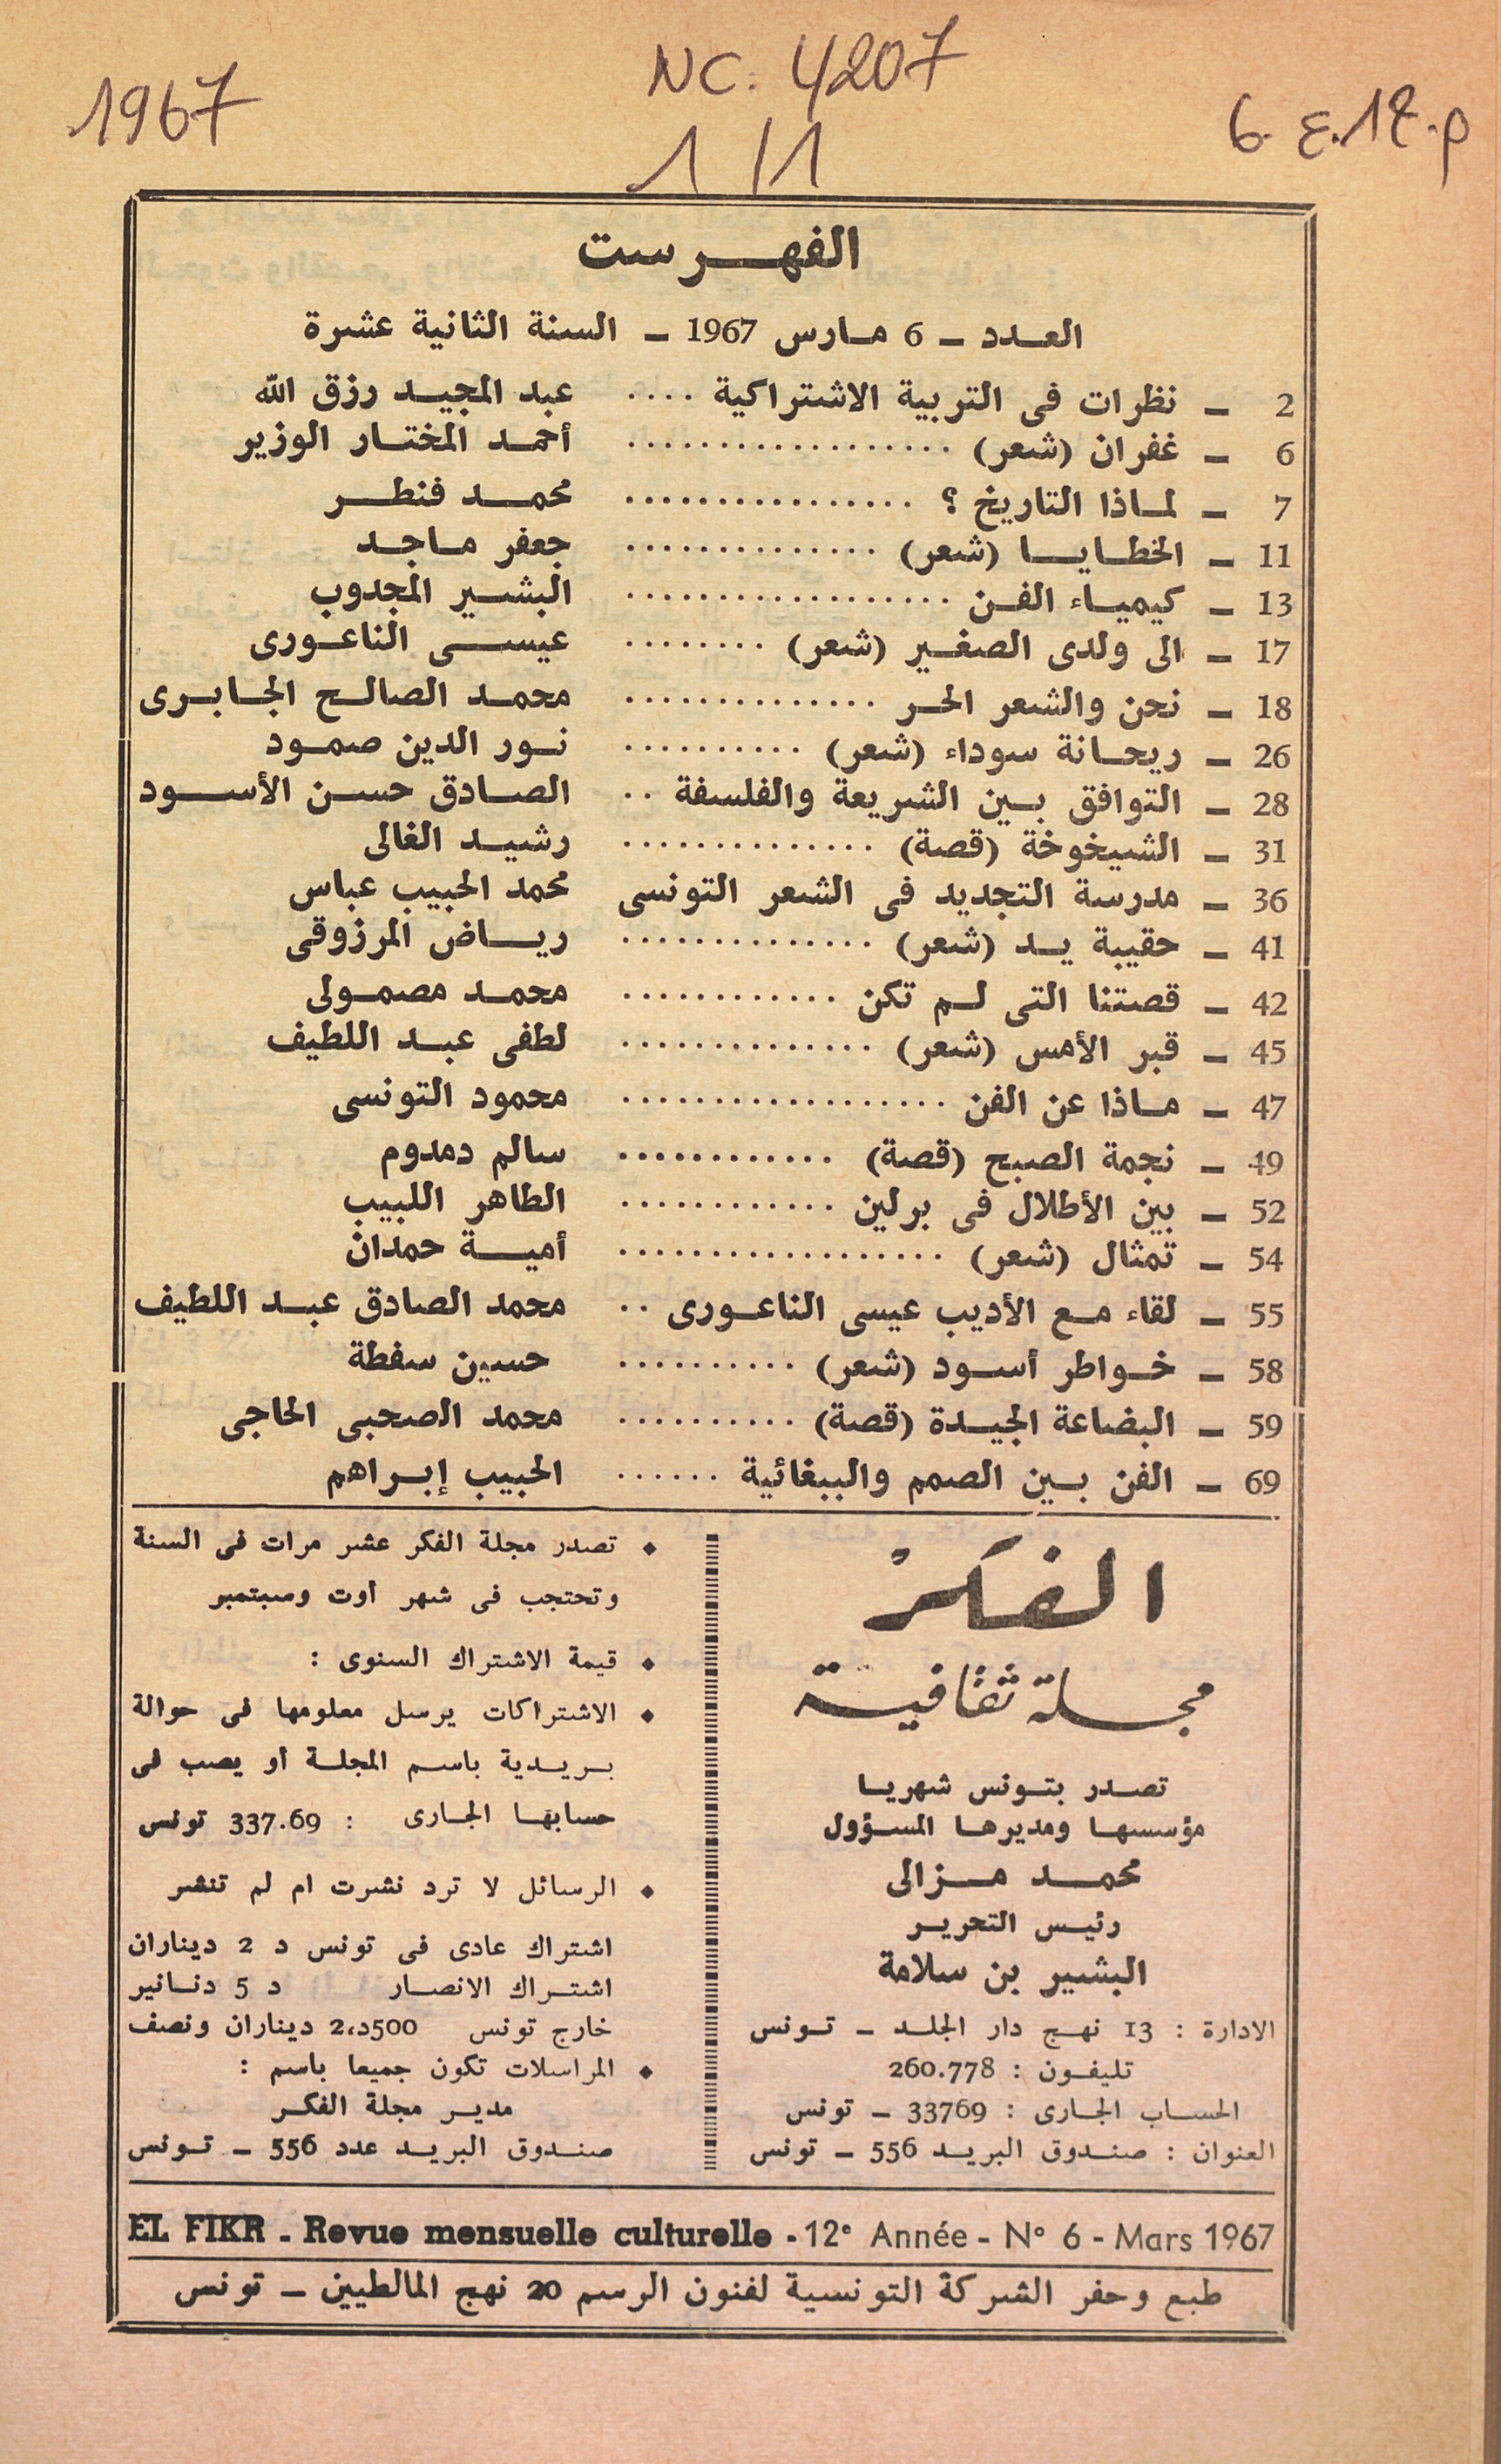 1967
NC. 4207
1/1
الفهرست
العدد – 6 مارس 1967 – السنة الثانية عشرة
2 – نظرات فى التربية الاشتراكية .... عبد المجيد رزق الله
6 – غفران (شعر) .................. أحمد المختار الوزير
7 – لماذا التاريخ ؟ ................ محمد فنطر
11 – الخطايا (شعر) .............. جعفر ماجد
13 – كيمياء الفن .................. البشير المجدوب
17 – الى ولدى الصغير (شعر) ........ عيسى الناعورى
18 – نحن والشعر الحر .............. محمد الصالح الجابرى
26 – ريحانة سوداء (شعر) .......... نور الدين صمود
28 – التوافق بين الشريعة والفلسفة .. الصادق حسن الأسود
31 – الشيخوخة (قصة) .............. رشيد الغالى
36 – مدرسة التجديد فى الشعر التونسى محمد الحبيب عباس
41 – حقيبة يد (شعر) .............. رياض المرزوقى
42 – قصتنا التى لم تكن ............ محمد مصمولى
45 – قبر الأمس (شعر) .............. لطفى عبد اللطيف
47 – ماذا عن الفن .................. محمود التونسى
49 – نجمة الصبح (قصة) ............ سالم دمدوم
52 – بين الأطلال فى برلين ............ الطاهر اللبيب
54 – تمثال (شعر) .................. أمية حمدان
55 – لقاء مع الأديب عيسى الناعورى .. محمد الصادق عبد اللطيف
58 – خواطر أسود (شعر) .......... حسين سفطة
59 – البضاعة الجيدة (قصة) .......... محمد الصحبى الحاجى
69 – الفن بين الصمم والببغائية ...... الحبيب إبراهم
الفكر
مجلة ثقافية
تصدر بتونس شهريا
مؤسسها ومديرها المسؤول
محمد مزالى
رئيس التحرير
البشير بن سلامة
الادارة : 13 نهج دار الجلد – تونس
تليفون : 260.778
الحساب الجارى : 33769 – تونس
العنوان : صندوق البريد 556 – تونس
♦ تصدر مجلة الفكر عشر مرات فى السنة
وتحتجب فى شهر أوت وسبتمبر
♦ قيمة الاشتراك السنوى :
♦ الاشتراكات يرسل معلومها فى حوالة
بريدية باسم المجلة أو يصب فى
حسابها الجارى : 337.69 تونس
♦ الرسائل لا ترد نشرت ام لم تنشر
اشتراك عادى فى تونس د 2 ديناران
اشتراك الانصار د 5 دنانير
خارج تونس 500د،2 ديناران ونصف
♦ المراسلات تكون جميعا باسم :
مدير مجلة الفكر
صندوق البريد عدد 556 – تونس
EL FIKR - Revue mensuelle culturelle - 12e Année - N° 6 - Mars 1967
طبع وحفر الشركة التونسية لفنون الرسم 20 نهج المالطيين – تونس